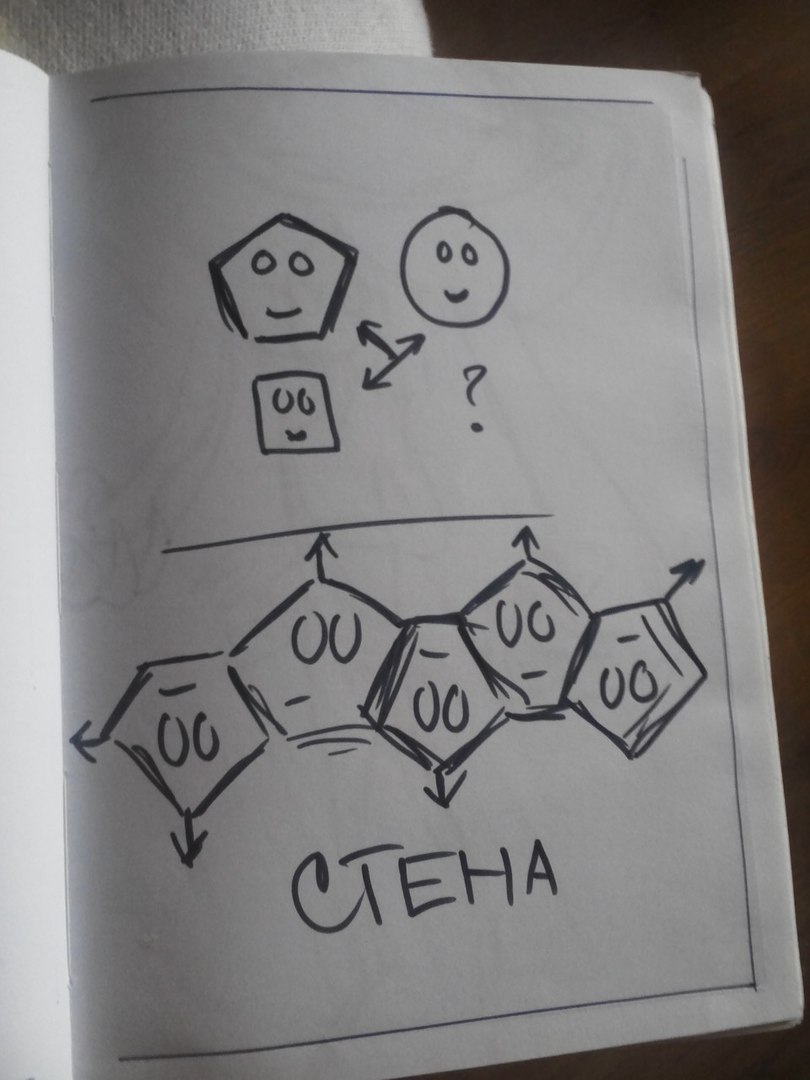 ?
СТЕНА